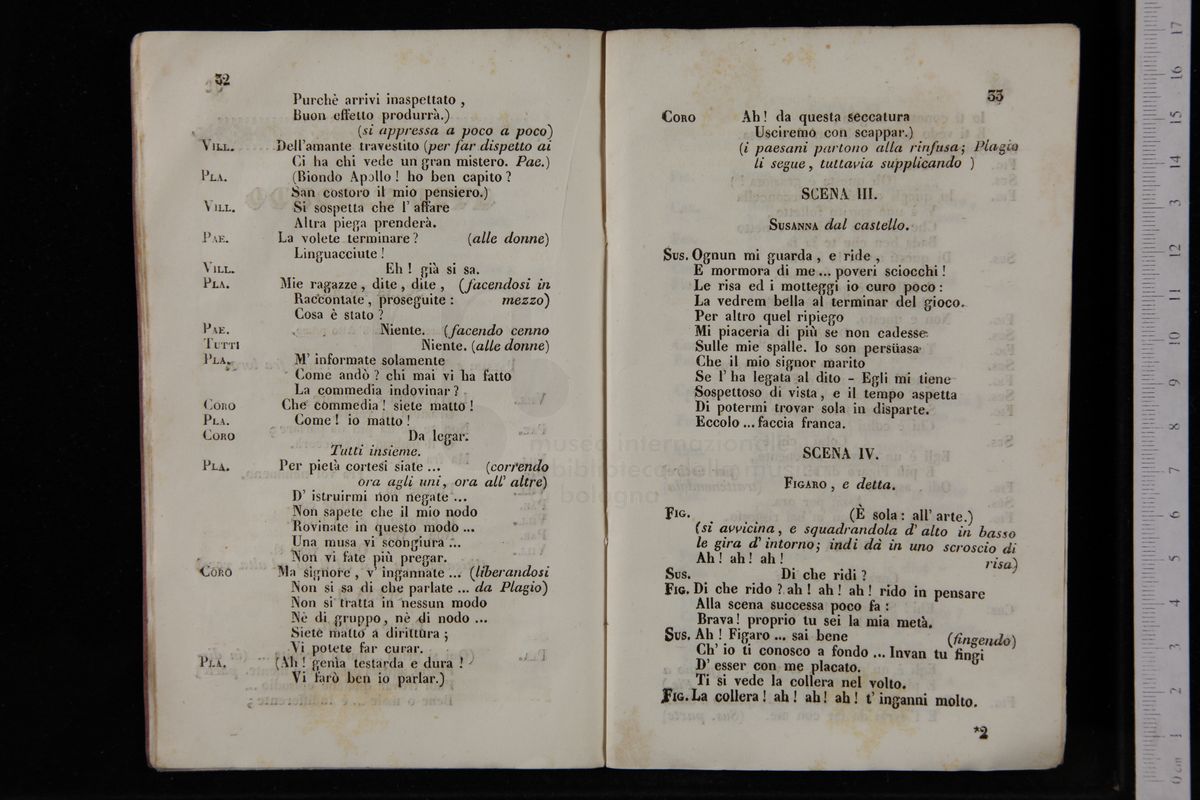 32
Purchè arrivi inaspettato ,
Buon effetto produrrà.)
(si appressa a poco a poco)
VILL. Dell'amante travestito (per far dispetto ai
Ci ha chi vede un gran mistero. Pae.)
PLA. (Biondo Apollo ! ho ben capito ?
San costoro il mio pensiero.)
VILL. Si sospetta che l' affare
Altra piega prenderà.
PAE. La volete terminare ? (alle donne)
Linguacciute !
VILL. Eh ! già si sa.
PLA. Mie ragazze , dite , dite , (facendosi in
Raccontate , proseguite : mezzo)
Cosa è stato ?
PAE. Niente. (facendo cenno
TUTTI Niente. (alle donne)
PLA. M' informate solamente
Come andò ? chi mai vi ha fatto
La commedia indovinar ?
CORO Che commedia ! siete matto !
PLA. Come ! io matto !
CORO Da legar.
Tutti insieme.
PLA. Per pietà cortesi siate ... (correndo
ora agli uni, ora all' altre)
D' istruirmi non negate ...
Non sapete che il mio nodo
Rovinate in questo modo ...
Una musa vi scongiura ...
Non vi fate più pregar.
CORO Ma signore , v' ingannate ... (liberandosi
Non si sa di che parlate ... da Plagio)
Non si tratta in nessun modo
Nè di gruppo, nè di nodo ...
Siete matto a dirittura ;
Vi potete far curar.
PLA. (Ah ! genìa testarda e dura !
Vi farò ben io parlar.)
33
CORO Ah ! da questa seccatura
Usciremo con scappar.)
(i paesani partono alla rinfusa; Plagio
li segue, tuttavia supplicando )
SCENA III.
SUSANNA dal castello.
SUS. Ognun mi guarda , e ride ,
E mormora di me ... poveri sciocchi !
Le risa ed i motteggi io curo poco :
La vedrem bella al terminar del gioco.
Per altro quel ripiego
Mi piaceria di più se non cadesse
Sulle mie spalle. Io son persüasa
Che il mio signor marito
Se l' ha legata al dito - Egli mi tiene
Sospettoso di vista , e il tempo aspetta
Di potermi trovar sola in disparte.
Eccolo ... faccia franca.
SCENA IV.
FIGARO , e detta.
FIG. (È sola : all' arte.)
(si avvicina, e squadrandola d' alto in basso
le gira d' intorno; indi dà in uno scroscio di
Ah ! ah ! ah ! risa)
SUS. Di che ridi ?
FIG. Di che rido ? ah ! ah ! ah ! rido in pensare
Alla scena successa poco fa :
Brava ! proprio tu sei la mia metà.
SUS. Ah ! Figaro ... sai bene (fingendo)
Ch' io ti conosco a fondo ... Invan tu fingi
D' esser con me placato.
Ti si vede la collera nel volto.
FIG. La collera ! ah ! ah ! ah ! t' inganni molto.
*2
museo internazionale
e biblioteca della musica
di bologna
0 cm 1 2 3 4 5 6 7 8 9 10 11 12 13 14 15 16 17